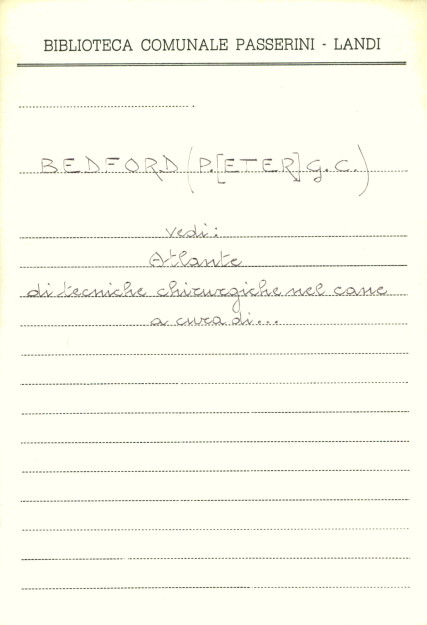 BIBLIOTECA COMUNALE PASSERINI - LANDI
BEDFORD (P.[ETER] G.C.)
vedi:
Atlante
di tecniche chirurgiche nel cane
a cura di...